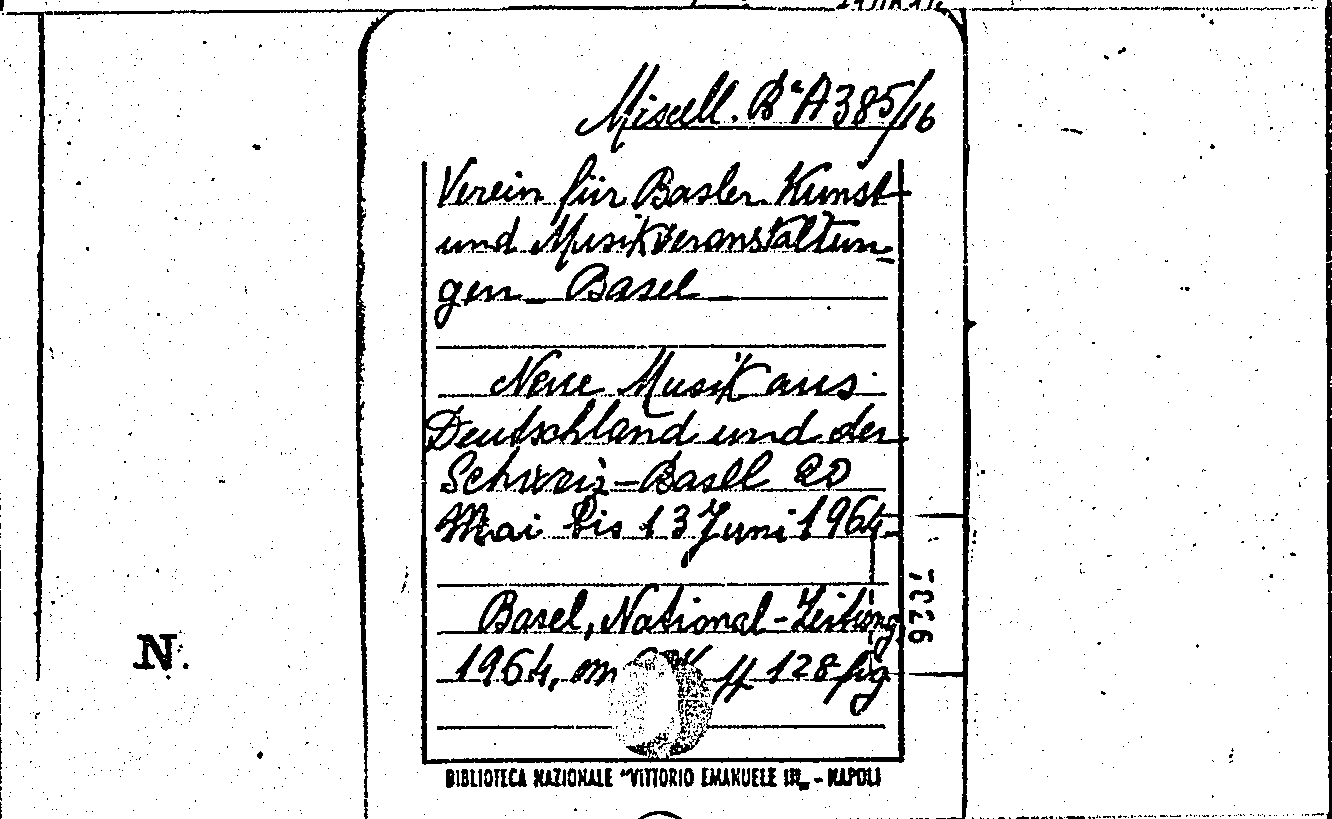 Miscell. Bª A 385/16
Verein für Basler Kunst-
und Musikveranstaltun=
gen - Basel
Neue Musik aus
Deutschland und der
Schweiz - Basel 20
Mai bis 13 Juni 1964.
Basel, National-Zeitung
1964, in ff 128 fig
N.
BIBLIOTECA NAZIONALE "VITTORIO EMANUELE III" - NAPOLI